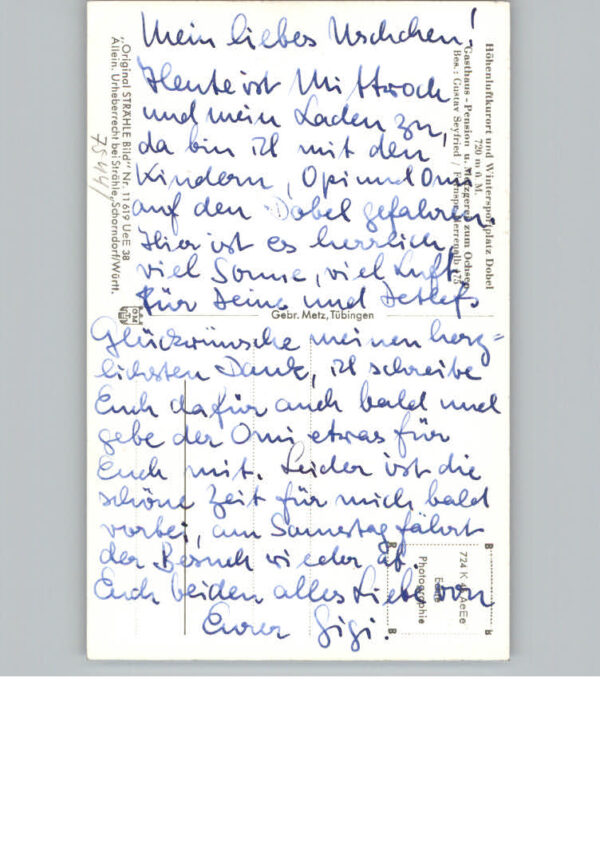 Mein liebes Urschchen!
Heute ist Mittwoch
und mein Laden zu,
da bin ich mit den
Kindern, Opi und Omi
auf den Dobel gefahren.
Hier ist es herrlich,
viel Sonne, viel Luft
Für Deine und Detlefs
Glückwünsche meinen herz=
lichsten Dank, ich schreibe
Euch dafür auch bald und
gebe der Omi etwas für
Euch mit. Leider ist die
schöne Zeit für mich bald
vorbei, am Samestag fährt
der Besuch wieder ab.
Euch beiden alles Liebe von
Eurer Gigi.
Höhenluftkurort und Wintersportplatz Dobel
720 m ü. M.
Gasthaus - Pension u. Metzgerei zum Ochsen
Bes.: Gustav Seyfried / Fernspr. Herrenalb 475
Gebr. Metz, Tübingen
"Original STRÄHLE Bild" Nr. 11 619 UeE 38
Allein. Urheberrecht bei Strähle, Schorndorf/Württ.
7544/
B B
724 K AeEe
Echte
Photographie
B B